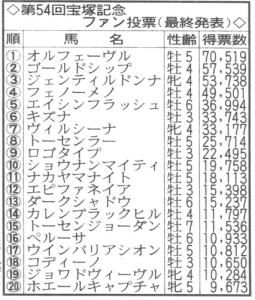 ◇第54回宝塚記念◇
ファン投票(最終発表)
順 馬名 性齢 得票数
① オルフェーヴル 牡5 70,519
② ゴールドシップ 牡4 57,539
③ ジェンティルドンナ 牝4 53,738
④ フェノーメノ 牡4 49,501
⑤ エイシンフラッシュ 牡6 36,994
⑥ キズナ 牡3 33,743
⑦ ヴィルシーナ 牝4 33,177
⑧ トーセンラー 牡5 25,714
⑨ ロゴタイプ 牡3 22,495
⑩ ショウナンマイティ 牡5 20,758
⑪ ナカヤマナイト 牡5 18,113
⑫ エピファネイア 牡3 15,398
⑬ ダークシャドウ 牡6 15,237
⑭ カレンブラックヒル 牡4 11,797
⑮ トーセンジョーダン 牡7 11,536
⑯ ペルーサ 牡6 10,933
⑰ ウインバリアシオン 牡5 10,812
⑱ コディーノ 牡3 10,650
⑲ ジョワドヴィーヴル 牝4 10,284
⑳ ホエールキャプチャ 牝5 9,673